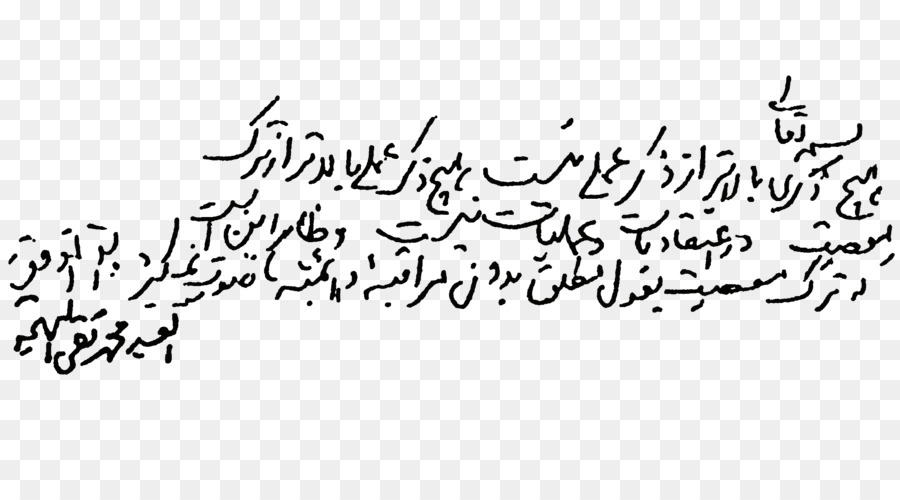 بسمه تعالی
هیچ ذکری بالاتر از ذکر عملی نیست هیچ ذکر عملی بالاتر از ترک
معصیت در اعتقادیات و عملیات نیست و ظاهر این است
که ترک معصیت بقول مطلق بدون مراقبهٔ دائمیّه صورت نمیگیرد و الله الموفق
العبد محمد تقی البهجة